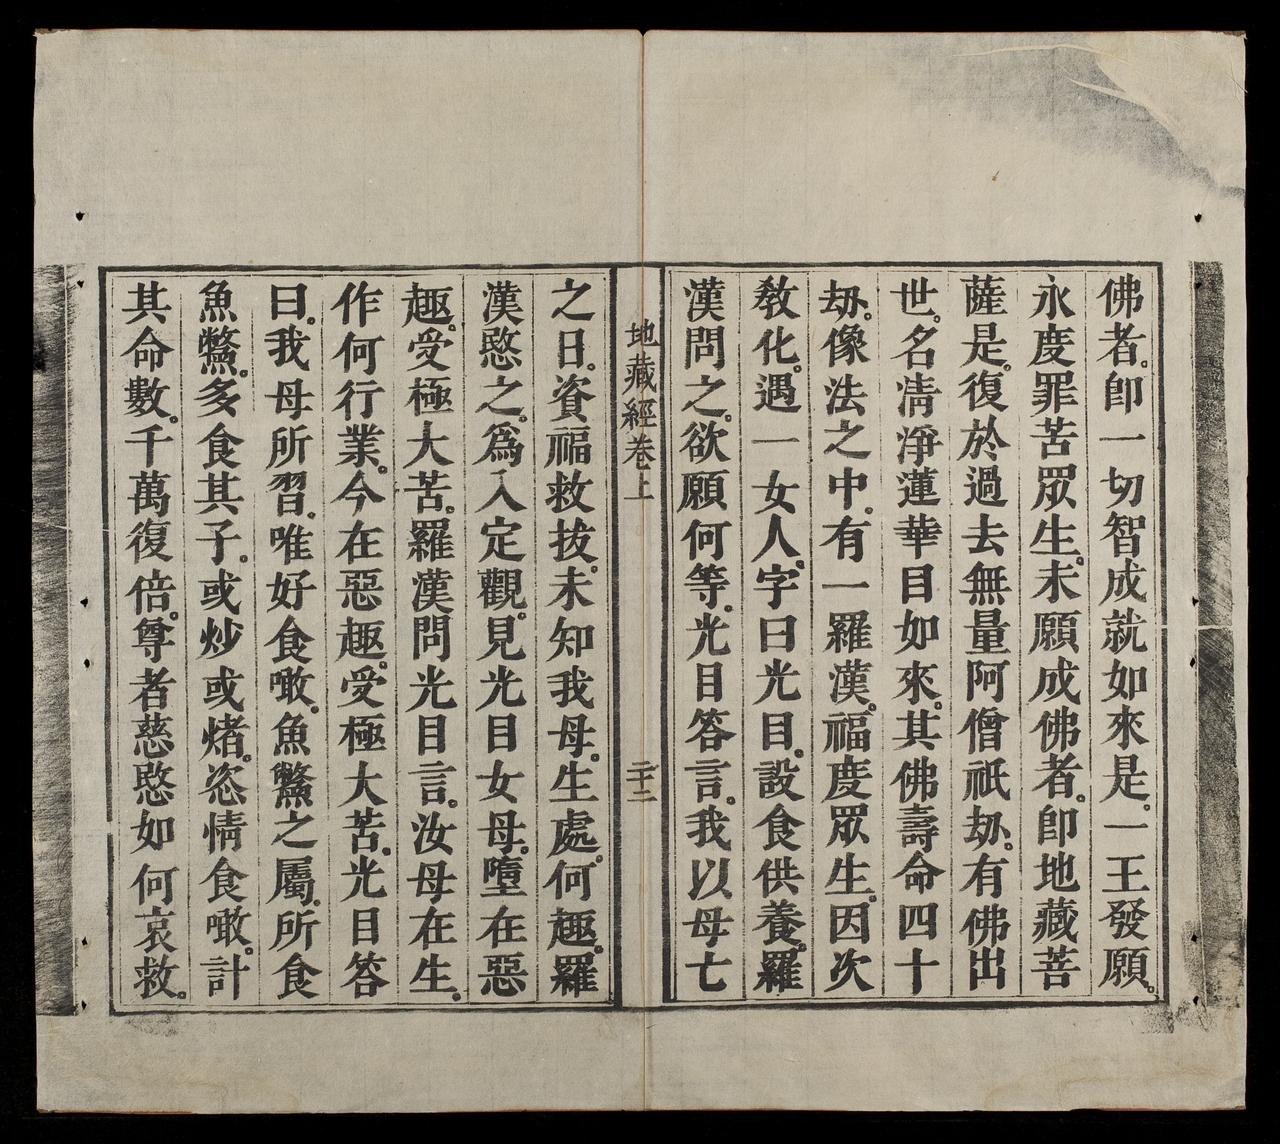 佛者。卽一切智成就如來是。一王發願。
永度罪苦眾生。未願成佛者。卽地藏菩
薩是。復於過去無量阿僧祇劫。有佛出
世。名淸淨蓮華目如來。其佛壽命四十
劫。像法之中。有一羅漢。福度眾生。因次
敎化。遇一女人。字曰光目。設食供養。羅
漢問之。欲願何等。光目答言。我以母亡
地藏經卷上
二十二
之日。資福救拔。未知我母。生處何趣。羅
漢愍之。爲入定觀。見光目女母。墮在惡
趣。受極大苦。羅漢問光目言。汝母在生。
作何行業。今在惡趣。受極大苦。光目答
曰。我母所習。唯好食噉。魚鱉之屬。所食
魚鱉。多食其子。或炒或煮。恣情食噉。計
其命數。千萬復倍。尊者慈愍如何哀救。